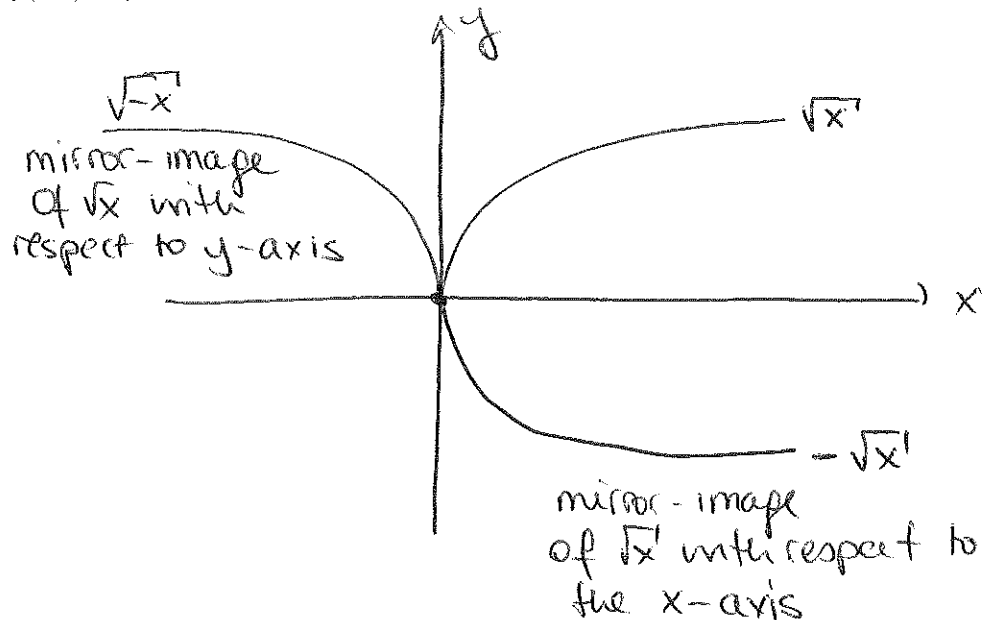 y
√-x
√x
mirror-image
of √x with
respect to y-axis
x
- √x
mirror-image
of √x with respect to
the x-axis